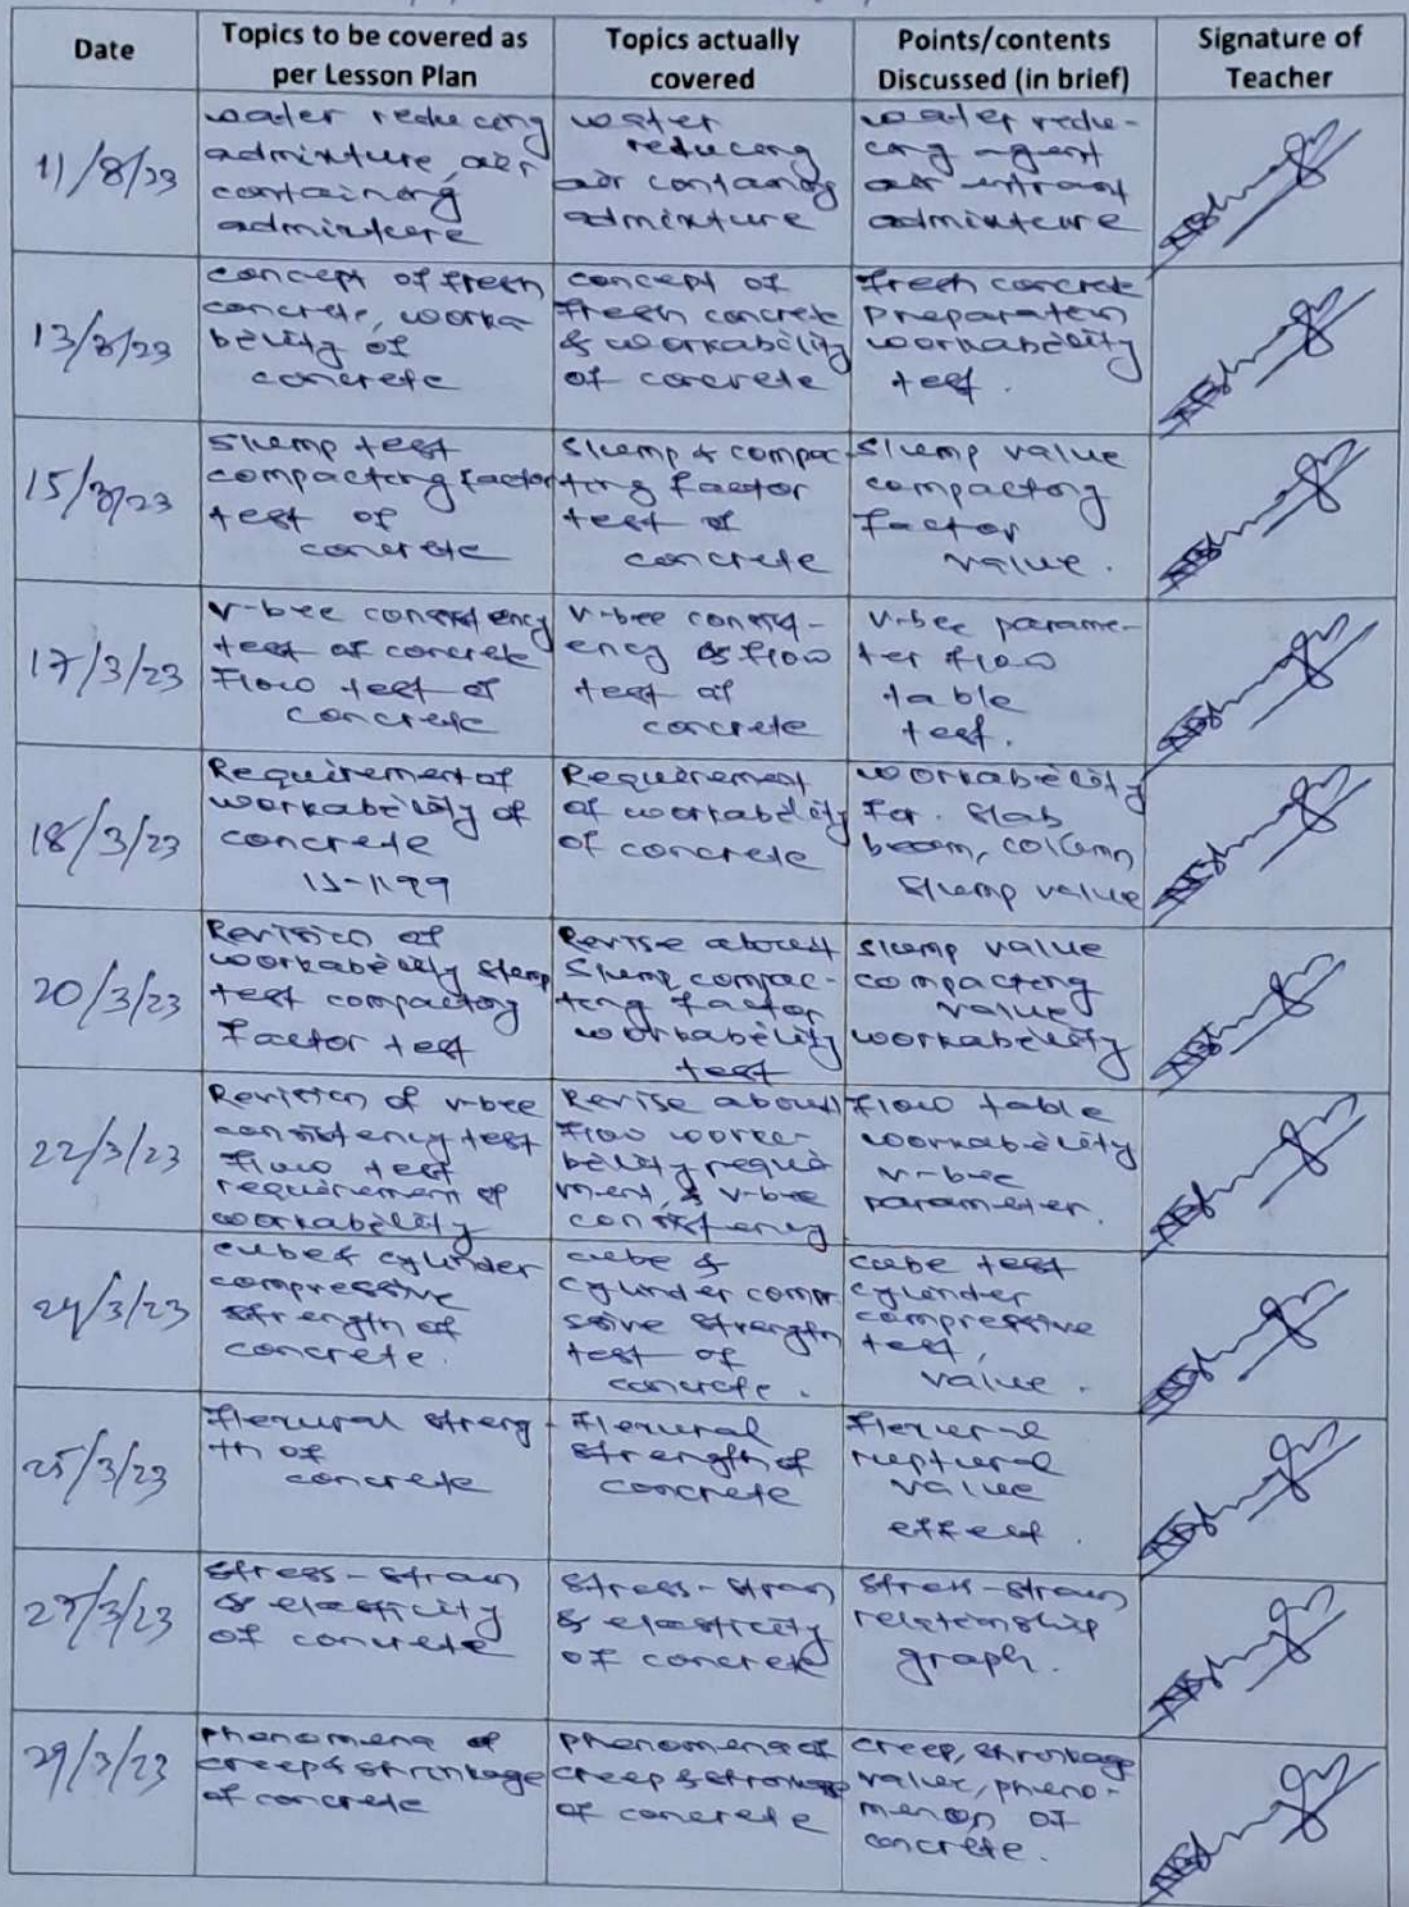 Date
Topics to be covered as
per Lesson Plan
Topics actually
covered
Points/contents
Discussed (in brief)
Signature of
Teacher
11/8/23
water reducing
admixture, air
containing
admixture
water
reducing
air containg
admixture
water redu-
cing agent
air entraint
admixture
13/3/23
concept of fresh
concrete, worka
bility of
concrete
concept of
fresh concrete
& workability
of concrete
fresh concrete
preparation
workability
test.
15/3/23
slump test
compacting factor
test of
concrete
Slump & compac
ting factor
test of
concrete
Slump value
compacting
factor
value.
17/3/23
v-bee consistency
test of concrete
Flow test of
concrete
v-bee consist-
ency & flow
test of
concrete
v-bee parame-
ter flow
table
test.
18/3/23
Requirement of
workability of
concrete
IS-1199
Requirement
of workability
of concrete
workability
for. slab
beam, column
slump value
20/3/23
Revision of
workability slump
test compacting
factor test
Revise about
Slump compac-
ting factor
workability
test
slump value
compacting
value
workability
22/3/23
Revision of v-bee
consistency test
flow test
requirement of
workability
Revise about
flow worka-
bility requi
ment, & v-bee
consistency
flow table
workability
v-bee
parameter.
24/3/23
cube & cylinder
compressive
strength of
concrete.
cube &
cylinder compr
ssive strength
test of
concrete.
cube test
cylinder
compressive
test,
value.
25/3/23
flexural streng-
th of
concrete
Flexural
strength of
concrete
flexural
ruptural
value
effect.
27/3/23
stress-strain
& elasticity
of concrete
stress-strain
& elasticity
of concrete
stress-strain
relationship
graph.
29/3/23
phenomena of
creep & shrinkage
of concrete
phenomena of
creep & shrinkage
of concrete
creep, shrinkage
value, pheno-
menon of
concrete.